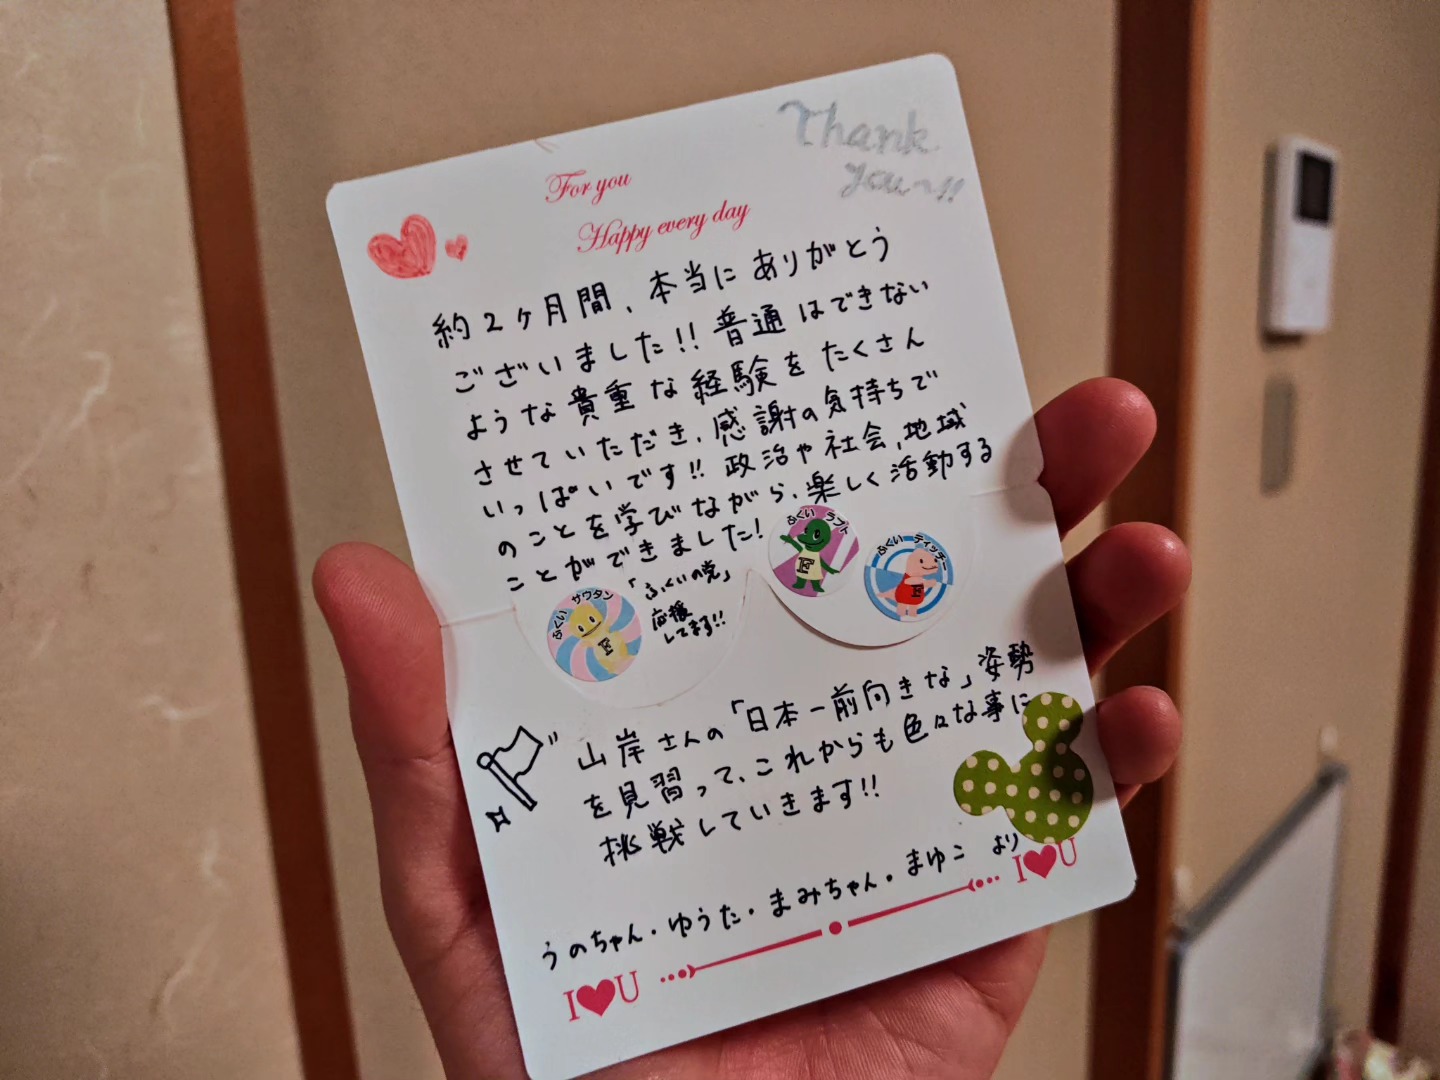 Thank
you~!!
For you
Happy every day
約2ヶ月間、本当にありがとう
ございました!!普通はできない
ような貴重な経験をたくさん
させていただき、感謝の気持ちで
いっぱいです!!政治や社会、地域
のことを学びながら、楽しく活動する
ことができました!
ふくい ラプト
ふくい ティッチー
ふくい サウタン
「ふくいの党」
応援
してます!!
山岸さんの「日本一前向きな」姿勢
を見習って、これからも色々な事に
挑戦していきます!!
うのちゃん・ゆうた・まみちゃん・まゆこ より
I♥U
I♥U